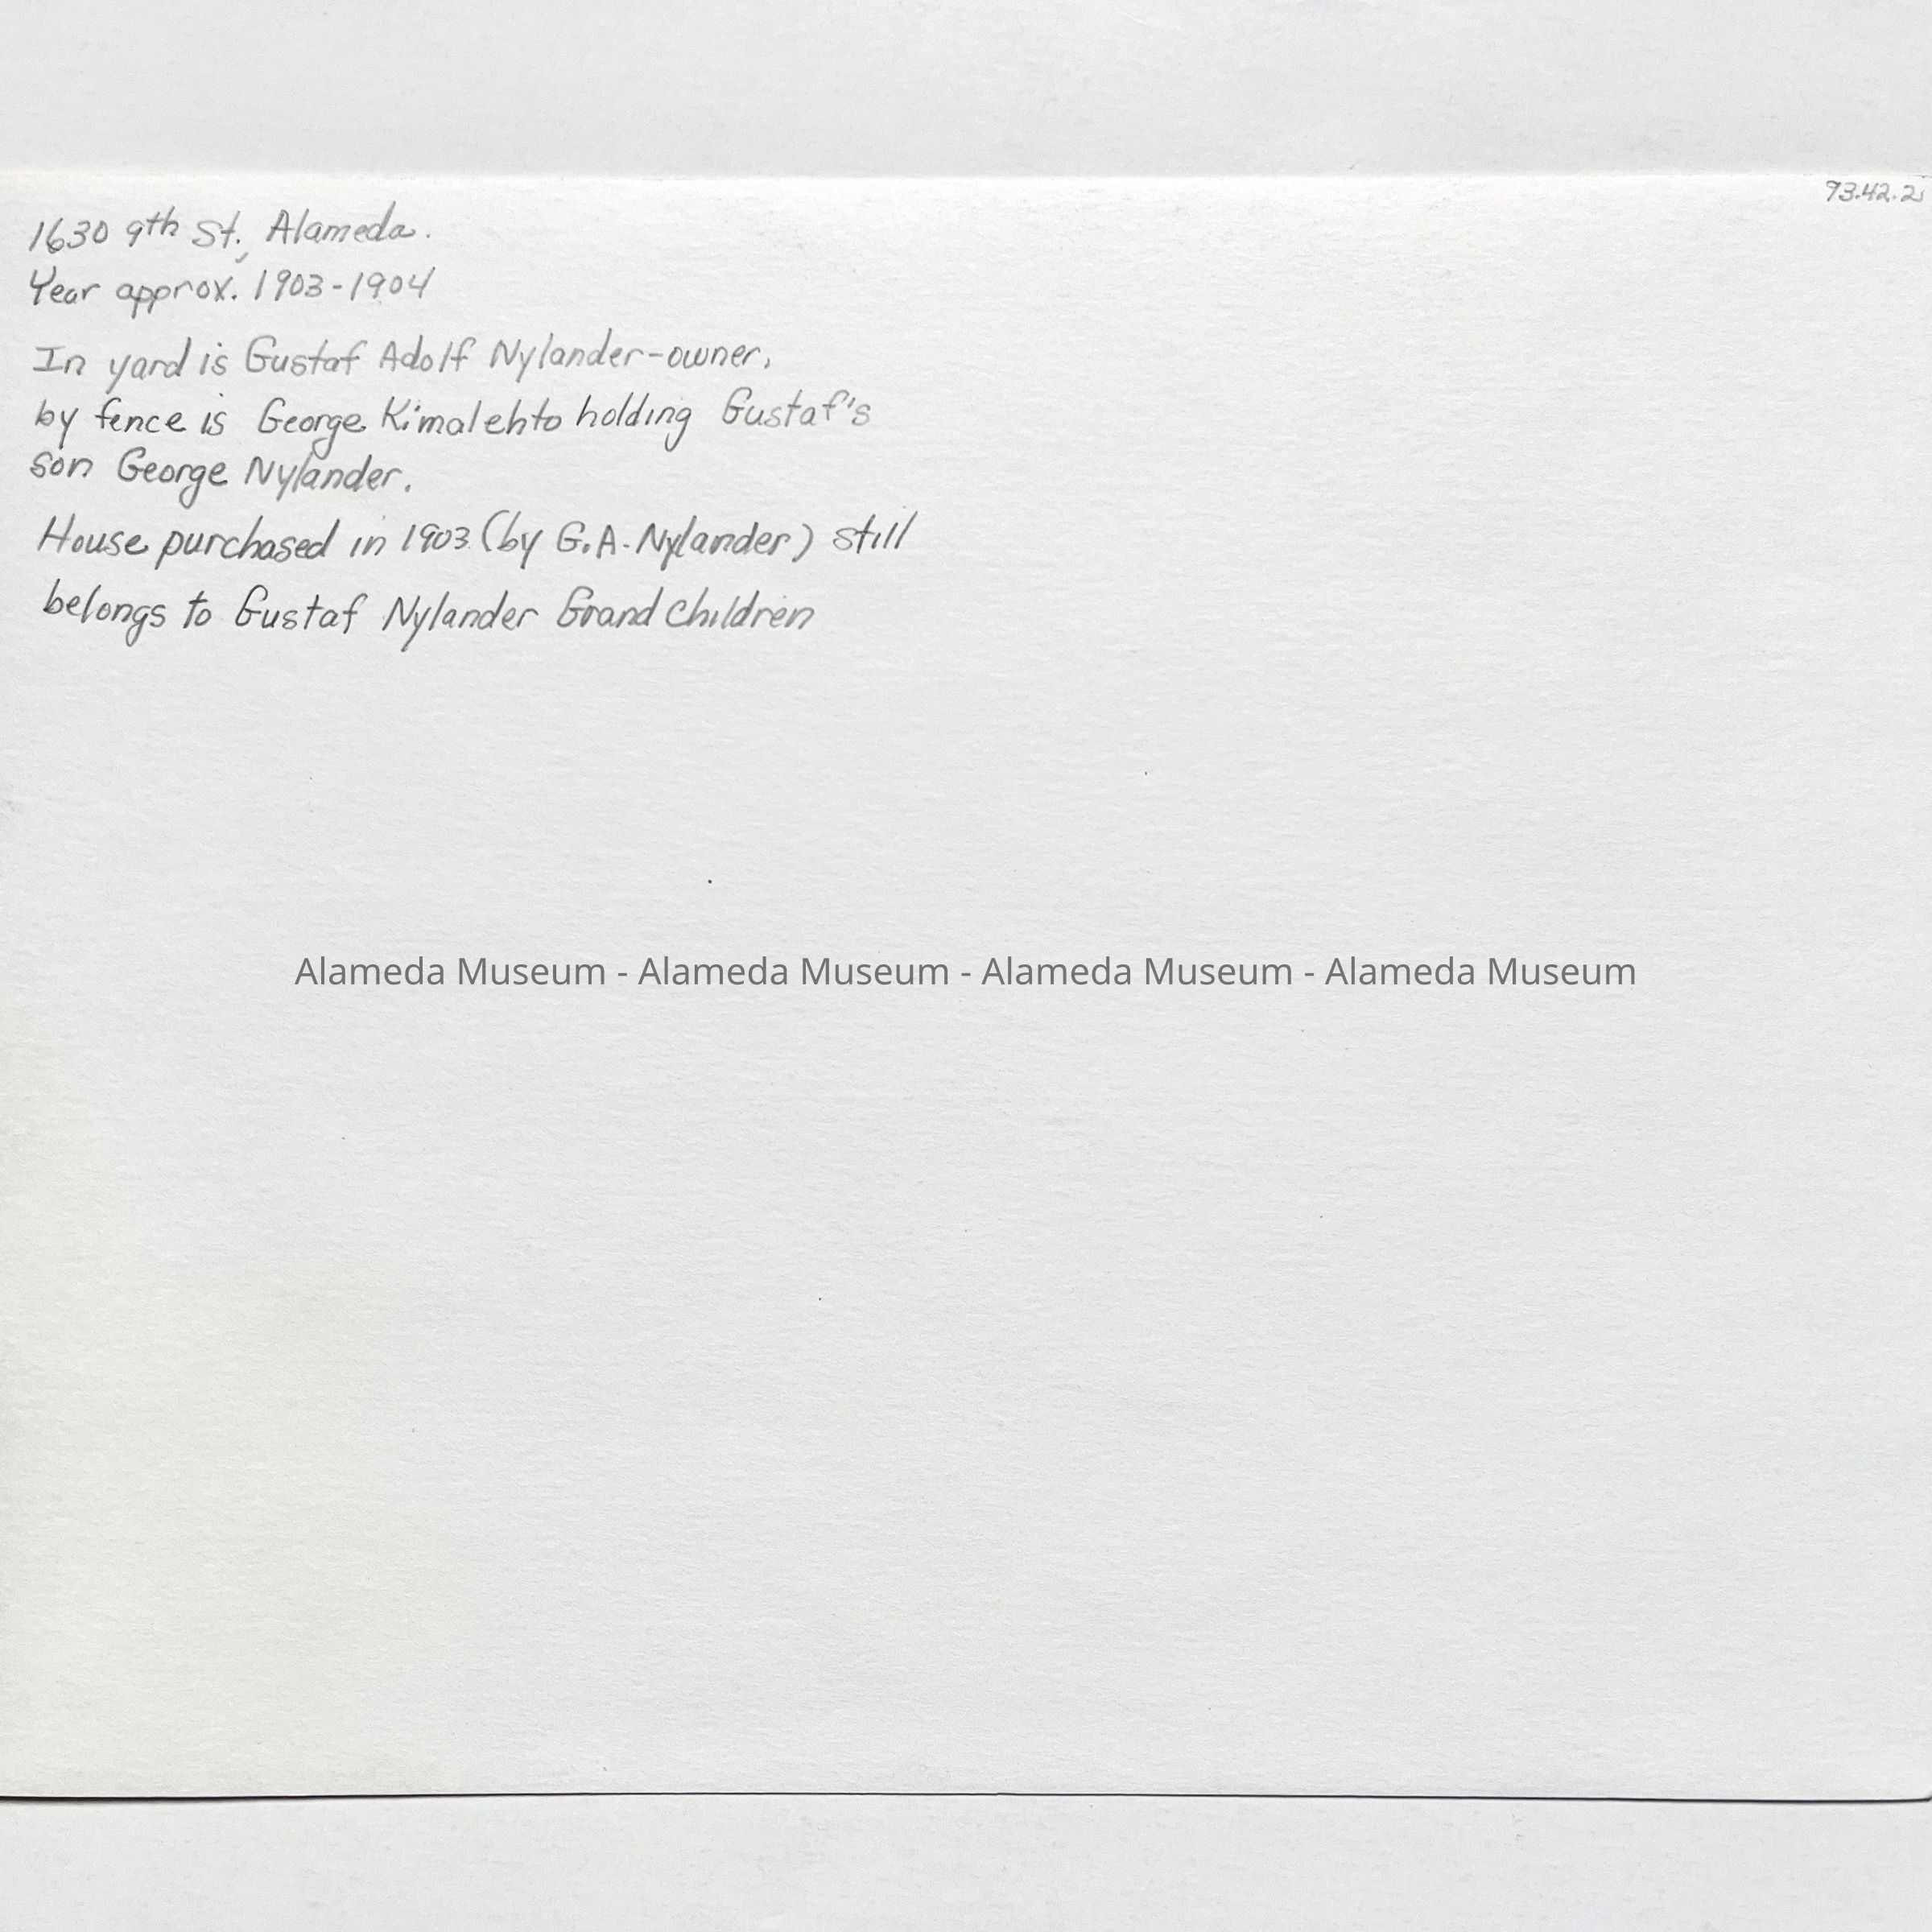 93.42.2
1630 9th St., Alameda.
Year approx. 1903-1904
In yard is Gustaf Adolf Nylander-owner,
by fence is George Kimalehto holding Gustaf's
son George Nylander.
House purchased in 1903 (by G.A. Nylander) still
belongs to Gustaf Nylander Grand Children
Alameda Museum - Alameda Museum - Alameda Museum - Alameda Museum